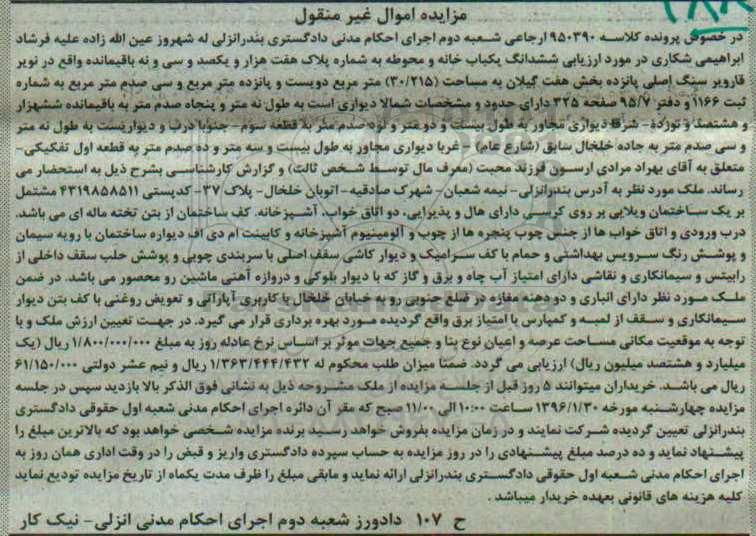 مزایده اموال غیر منقول
در خصوص پرونده کلاسه ۹۵۰۳۹۰ ارجاعی شعبه دوم اجرای احکام مدنی دادگستری بندرانزلی له شهروز عین الله زاده علیه فرشاد
ابراهیمی شکاری در مورد ارزیابی ششدانگ یکباب خانه و محوطه به شماره پلاک هفت هزار و یکصد و سی و نه باقیمانده واقع در نویر
قازویر سنگ اصلی پانزده بخش هفت گیلان به مساحت (۳۰/۲۱۵) متر مربع دویست و پانزده متر مربع و سی صدم متر مربع به شماره
ثبت ۱۱۶۶ و دفتر ۹۵/۷ صفحه ۳۲۵ دارای حدود و مشخصات شمالا دیواری است به طول نه متر و پنجاه صدم متر به باقیمانده ششهزار
و هشتصد و نوزده- شرقا دیواری مجاور به طول بیست و دو متر و نود صدم متر بلا قطعه سوم- جنوبا درب و دیواریست به طول نه متر
و سی صدم متر به جاده خلخال سابق (شارع عام) - غربا دیواری مجاور به طول بیست و سه متر و ده صدم متر به قطعه اول تفکیکی-
متعلق به آقای بهراد مرادی ارسون فرزند محبت (معرف مال توسط شخص ثالث) و گزارش کارشناسی بشرح ذیل به استحضار می
رساند. ملک مورد نظر به آدرس بندرانزلی- نیمه شعبان - شهرک صادقیه- اتوبان خلخال- پلاک ۳۷- کدپستی ۴۳۱۹۸۵۸۵۱۱ مشتمل
بر یک ساختمان ویلایی بر روی کرسی دارای هال و پذیرایی، دو اتاق خواب، آشپزخانه. کف ساختمان از بتن تخته ماله ای می باشد.
درب ورودی و اتاق خواب ها از جنس چوب پنجره ها از چوب و آلومینیوم آشپزخانه و کابینت ام دی اف دیواره ساختمان با رویه سیمان
و پوشش رنگ سرویس بهداشتی و حمام با کف سرامیک و دیوار کاشی سقف اصلی با سربندی چوبی و پوشش حلب سقف داخلی از
رابیتس و سیمانکاری و نقاشی دارای امتیاز آب چاه و برق و گاز که با دیوار بلوکی و دروازه آهنی ماشین رو محصور می باشد. در ضمن
ملک مورد نظر دارای انباری و دو دهنه مغازه در ضلع جنوبی رو به خیابان خلخال با کاربری آپاراتی و تعویض روغنی با کف بتن دیوار
سیمانکاری و سقف از لمبه و کمپارس با امتیاز برق واقع گردیده مورد بهره برداری قرار می گیرد. در جهت تعیین ارزش ملک و با
توجه به موقعیت مکانی مساحت عرصه و اعیان نوع بنا و جمیع جهات موثر بر اساس نرخ عادله روز به مبلغ ۱/۸۰۰/۰۰۰/۰۰۰ ریال (یک
میلیارد و هشتصد میلیون ریال) ارزیابی می گردد. ضمنا میزان طلب محکوم له ۱/۳۶۳/۴۴۴/۴۳۲ ریال و نیم عشر دولتی ۶۱/۱۵۰/۰۰۰
ریال می باشد. خریداران میتوانند ۵ روز قبل از جلسه مزایده از ملک مشروحه ذیل به نشانی فوق الذکر بالا بازدید سپس در جلسه
مزایده چهارشنبه مورخه ۱۳۹۶/۱/۳۰ ساعت ۱۰:۰۰ الی ۱۱/۰۰ صبح که مقر آن دائره اجرای احکام مدنی شعبه اول حقوقی دادگستری
بندرانزلی تعیین گردیده شرکت نمایند و در زمان مزایده بفروش خواهد رسید برنده مزایده شخصی خواهد بود که بالاترین مبلغ را
پیشنهاد نماید و ده درصد مبلغ پیشنهادی را در روز مزایده به حساب سپرده دادگستری واریز و قبض را در وقت اداری همان روز به
اجرای احکام مدنی شعبه اول حقوقی دادگستری بندرانزلی ارائه نماید و مابقی مبلغ را ظرف مدت یکماه از تاریخ مزایده تودیع نماید
کلیه هزینه های قانونی بعهده خریدار میباشد .
ح ۱۰۷ دادورز شعبه دوم اجرای احکام مدنی انزلی- نیک کار